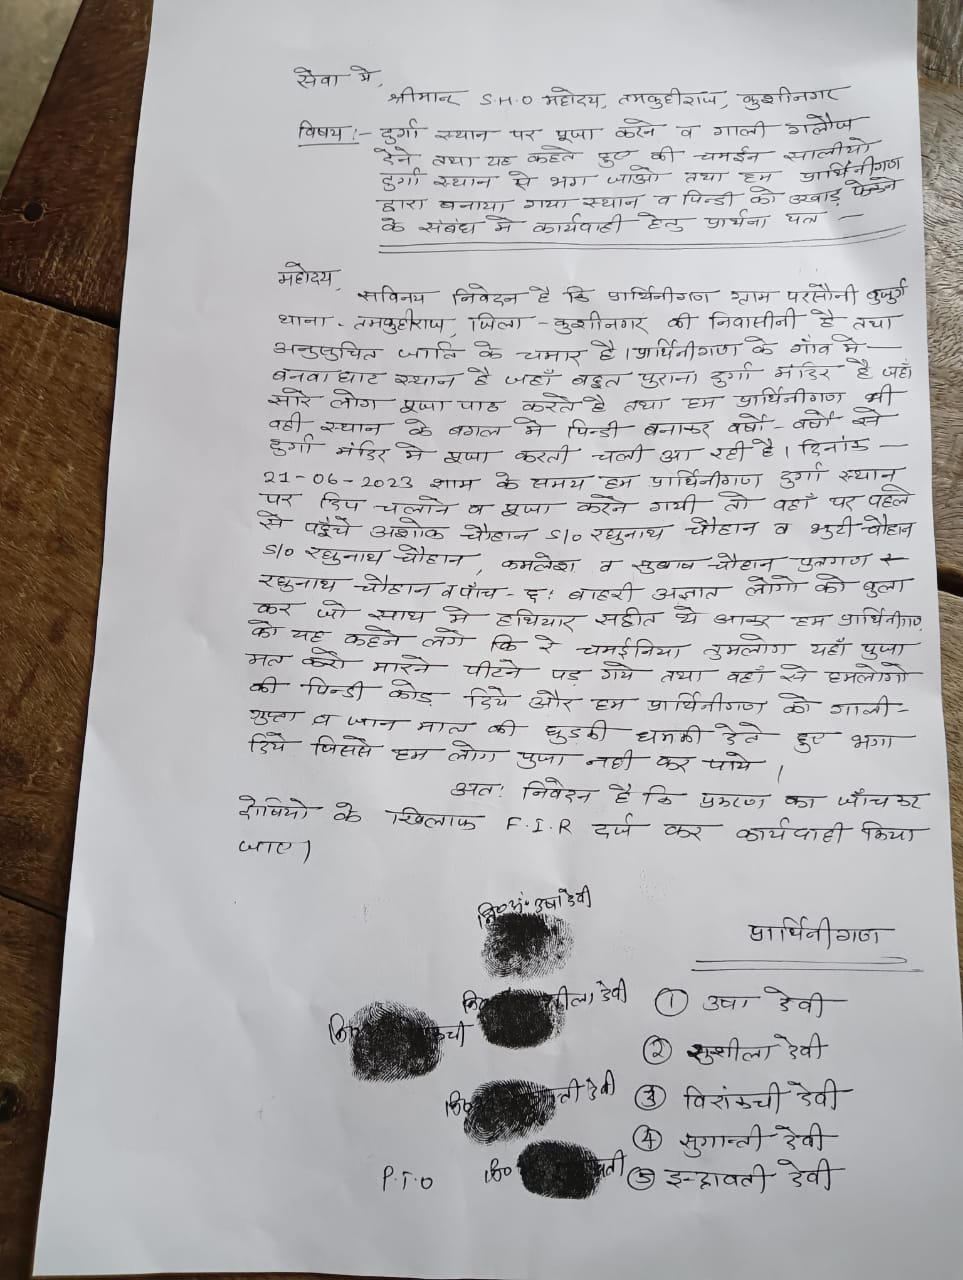 सेवा मे,
श्रीमान S.H.O महोदय, तमकुहीराज, कुशीनगर
विषय :- दुर्गा स्थान पर पूजा करने व गाली गलौज
देने तथा यह कहते हुए की चमईन सालीयो
दुर्गा स्थान से भग जाओ तथा हम प्रार्थिनीगण
द्वारा बनाया गया स्थान व पिन्डी को उखाड़ फेकने
के संबंध मे कार्यवाही हेतु प्रार्थना पत्र -
महोदय,
सविनय निवेदन है कि प्रार्थिनीगण ग्राम परसौनी बुजुर्ग
थाना - तमकुहीराज, जिला - कुशीनगर की निवासीनी है तथा
अनुसुचित जाति के चमार है। प्रार्थिनीगण के गाँव मे -
बनवा घाट स्थान है जहाँ बहुत पुराना दुर्गा मंदिर है जहाँ
सारे लोग पूजा पाठ करते है तथा हम प्रार्थिनीगण भी
वही स्थान के बगल मे पिन्डी बनाकर वर्षो - वर्षो से
दुर्गा मंदिर मे पूजा करती चली आ रही है। दिनांक -
21-06-2023 शाम के समय हम प्रार्थिनीगण दुर्गा स्थान
पर दिप जलाने व पूजा करने गयी तो वहाँ पर पहले
से पहुँचे अशोक चौहान S/o रघुनाथ चौहान व भुटी चौहान
S/o रघुनाथ चौहान, कमलेश व सुबाष चौहान पुत्रगण
रघुनाथ चौहान व पाँच - छ: बाहरी अज्ञात लोगो को बुला
कर जो साथ मे हथियार सहीत थे आकर हम प्रार्थिनीगण
को यह कहने लगे कि रे चमईनिया तुमलोग यहाँ पुजा
मत करो मारने पीटने पड़ गये तथा वहाँ से हमलोगो
की पिन्डी फोड़ दिये और हम प्रार्थिनीगण को गाली -
गुप्ता व जान माल की धुड़की धमकी देते हुए भगा
दिये जिससे हम लोग पुजा नही कर पाये।
अत: निवेदन है कि प्रकरण का जाँच कर
दोषियो के खिलाफ F.I.R दर्ज कर कार्यवाही किया
जाए।
प्रार्थिनीगण
नि०अं० उषा देवी
① उषा देवी
② सुशीला देवी
③ विरांकची देवी
④ सुगान्ती देवी
⑤ इन्द्रावती देवी
P.T.O